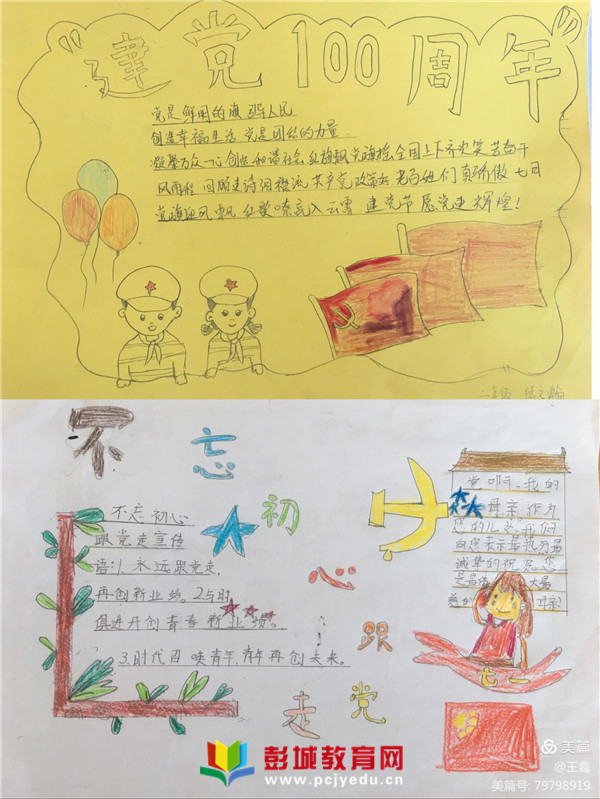 建党100周年
党是鲜明的旗 人民
创造幸福生活 党是团结的力量
凝聚万众一心 创造和谐社会 红旗飘 党旗 全国上下齐欢笑
风雨程 回 诗 共产党政策好 老百姓们真骄傲 七月
党旗迎风飘 红歌嘹亮入云霄 建党节 愿党建辉煌！
二年级
不忘初心跟党走
不忘初心
跟党走宣传
语:1.永远跟党走,
再创新业绩。2.与时
俱进开创青春新业绩。
3.时代召唤青年,青年再创未来。
党啊,我的
母亲,作为
您的儿女,我们
向您表示最热烈最
诚挚的祝 您
七一
彭城教育网
www.pcjyedu.cn
美篇
@王鑫
美篇号: 79798919